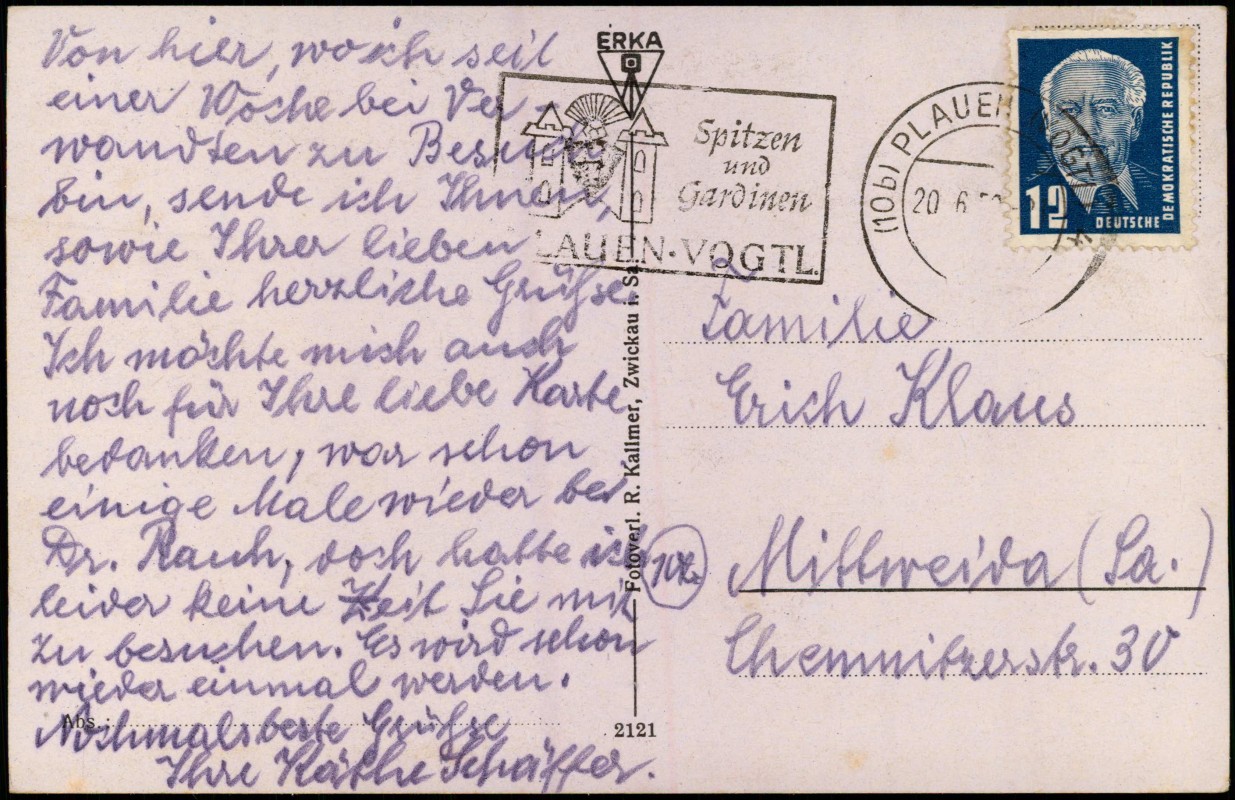 Von hier, wo ich seit
einer Woche bei Ver-
wandten zu Besuch
bin, sende ich Ihnen,
sowie Ihrer lieben
Familie herzliche Grüße.
Ich möchte mich auch
noch für Ihre liebe Karte
bedanken, war schon
einige Male wieder bei
Dr. Rauh, doch hatte ich
leider keine Zeit Sie mit
zu besuchen. Es wird schon
wieder einmal werden.
Abs.:
Nochmals beste Grüße
Ihre Käthe Schäffer.
ERKA
Spitzen
und
Gardinen
LAUEN·VOGTL.
Fotoverl. R. Kallmer, Zwickau i. Sa.
2121
(10b) PLAUEN (VOGTL)
20 6
12
DEUTSCHE
DEMOKRATISCHE REPUBLIK
Familie
Erich Klaus
Mittweida (Sa.)
Chemnitzerstr. 30